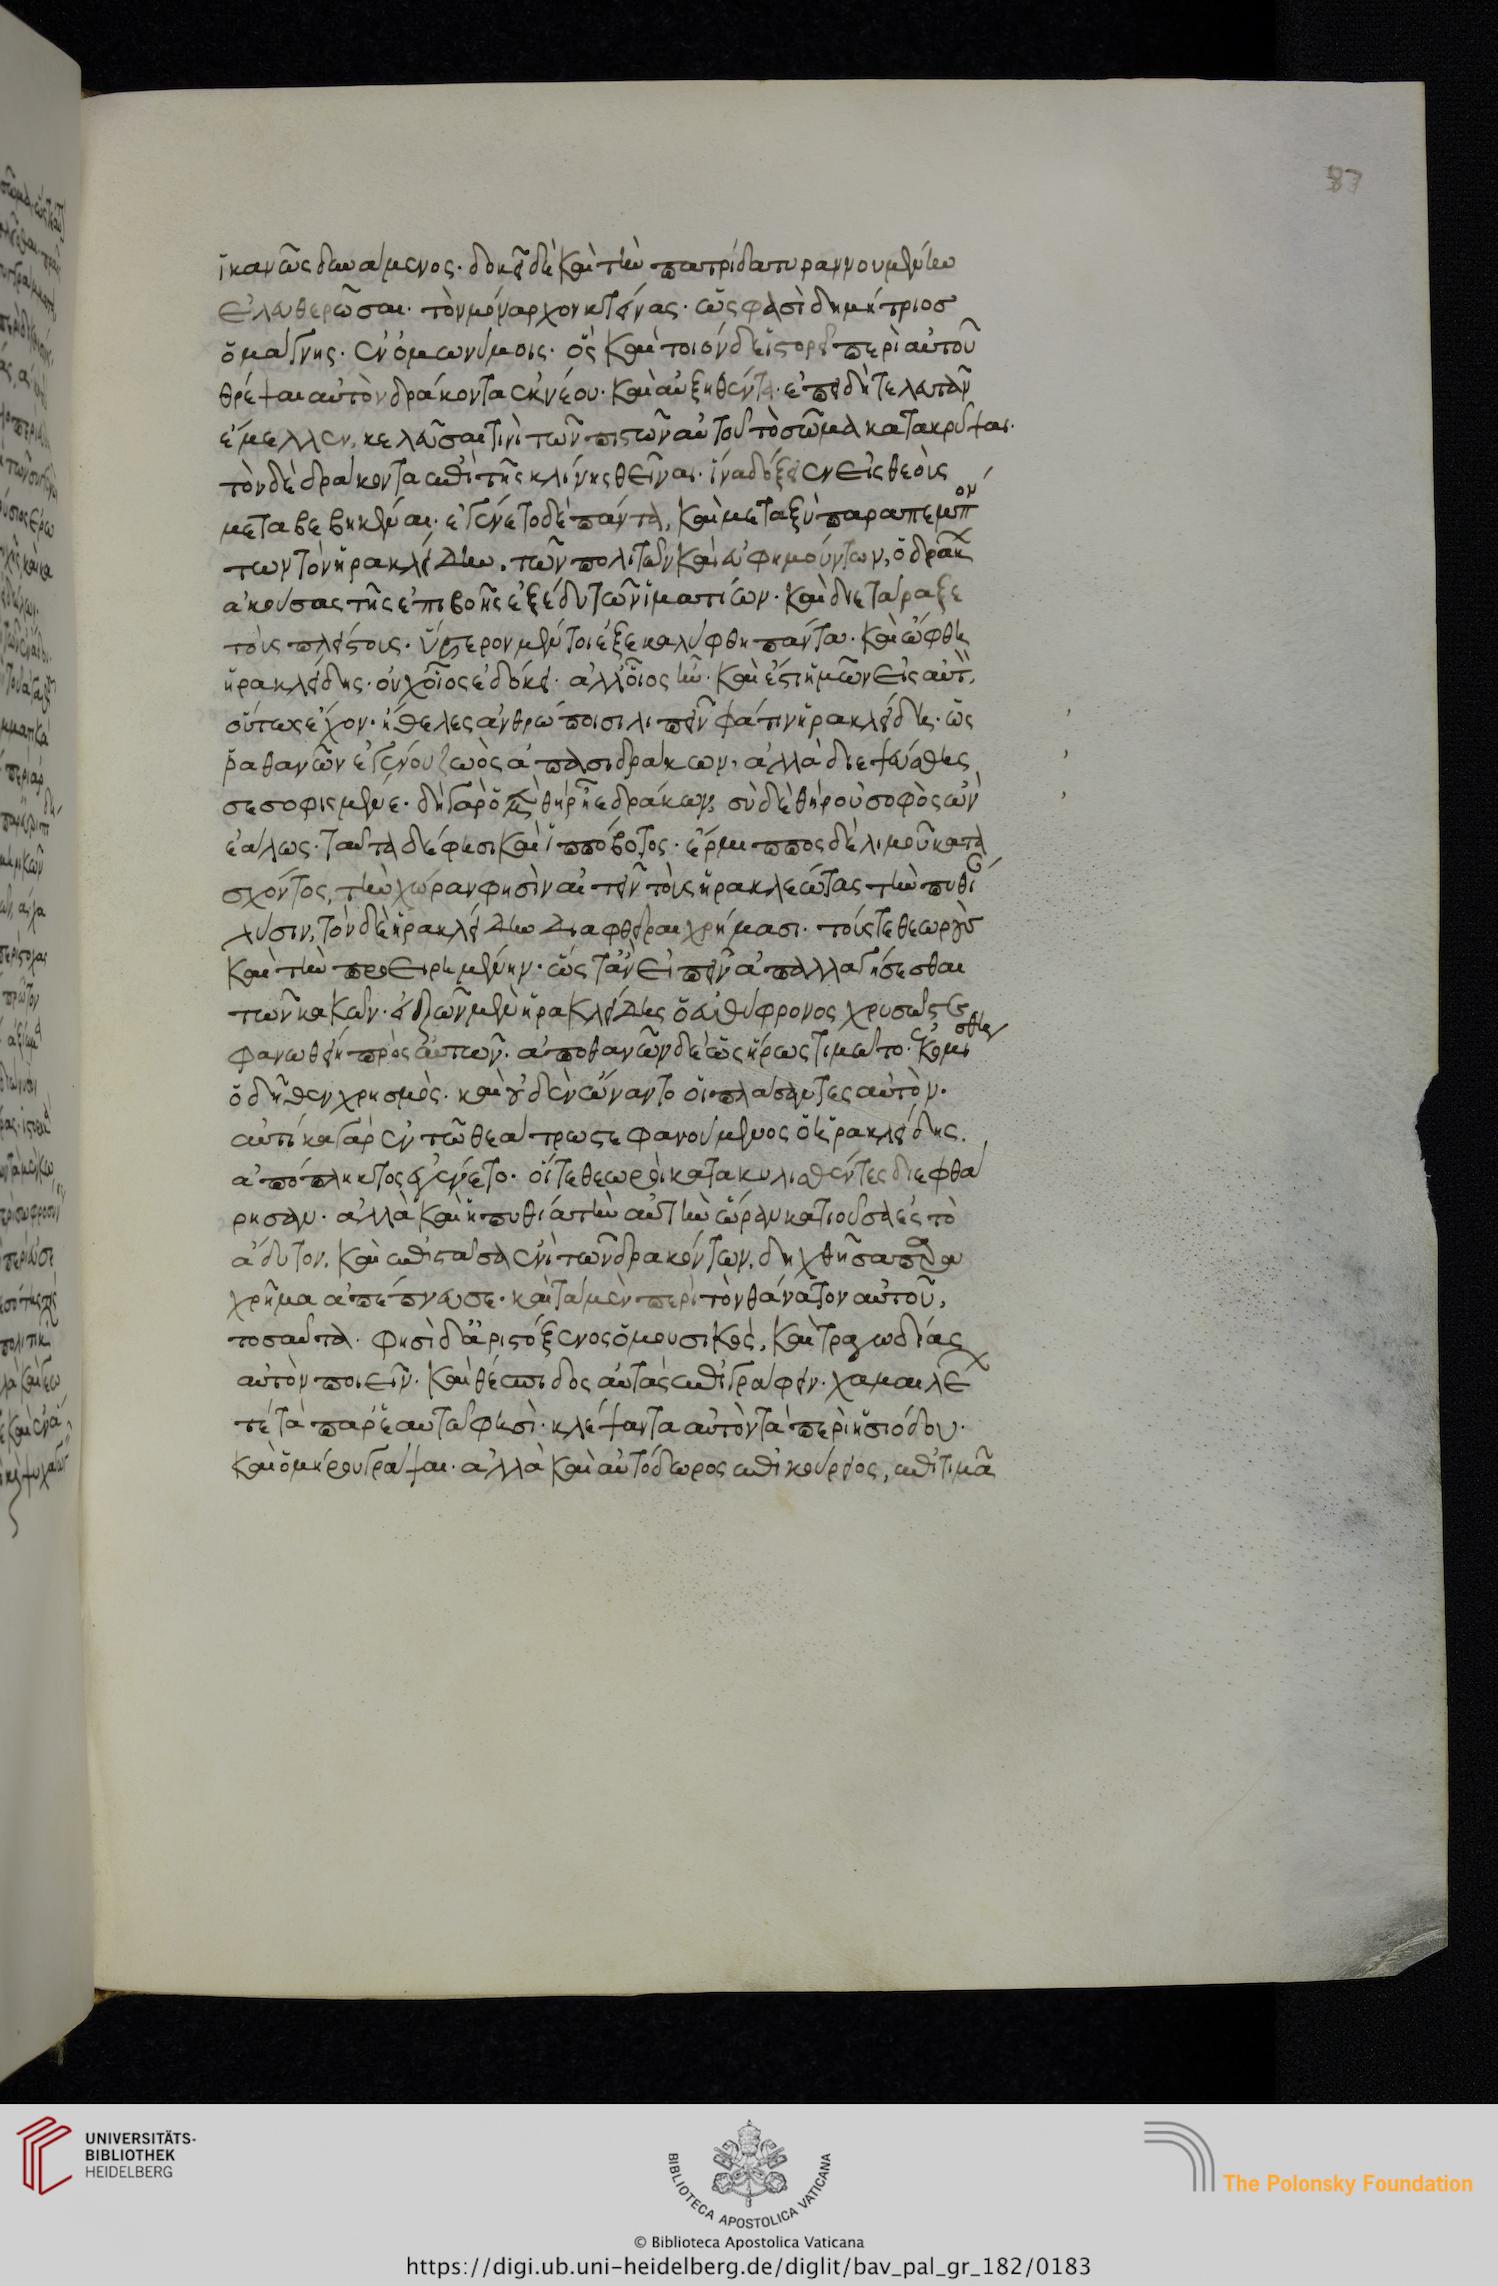 87
ἱκανῶς δυνάμενος· δοκεῖ δὲ καὶ τὴν πατρίδα τυραννουμένην
ἐλευθερῶσαι· τὸν μόναρχον κτείνας· ὥς φησὶ δημήτριος
ὁ μάγνης· ἐν ὁμωνύμοις· ὃς καὶ τοιόνδε ἱστορεῖ περὶ αὐτοῦ
θρέψαι αὐτὸν δράκοντα ἐκ νέου· καὶ αὐξηθέντα· ἐπειδὴ τελευτᾶν
ἔμελλεν, κελεῦσαι τινὶ τῶν πιστῶν αὐτοῦ τὸ σῶμα κατακρύψαι·
τὸν δὲ δράκοντα ἐπὶ τῆς κλίνης θεῖναι· ἵνα δόξειεν εἰς θεοὺς
μεταβεβηκέναι· ἐγένετο δὲ πάντα, καὶ μεταξὺ παραπεμπόν
των τὸν ἡρακλείδην, τῶν πολιτῶν καὶ εὐφημούντων, ὁ δράκ
ἀκούσας τῆς ἐπιβοῆς ἐξέδυ τῶν ἱματίων· καὶ διετάραξε
τοὺς πλείστους· ὕστερον μέντοι ἐξεκαλύφθη πάντα· καὶ ὤφθη
ἡρακλείδης· οὐχ οἷος ἐδόκει· ἀλλ' οἷος ἦν· καὶ ἔστι ἡμῶν εἰς αὐτ
οὕτως ἔχον· ἤθελες ἀνθρώποισι λιπεῖν φάτιν ἡρακλείδη· ὥς
ῥα θανὼν ἐγένου ζωὸς ἅπασι δράκων· ἀλλὰ διεψεύσθης
σεσοφισμένε· δὴ γὰρ ὁ μὲν θὴρ ἦε δράκων, σὺ δὲ θὴρ οὐ σοφὸς ὢν
ἑάλως· ταῦτα δέ φησι καὶ ἱππόβοτος· ἕρμιππος δὲ λιμοῦ κατα
σχόντος, τὴν χώραν φησὶν αἰτεῖν τοὺς ἡρακλεώτας τὴν πυθί
λύσιν, τὸν δὲ ἡρακλείδην διαφθεῖραι χρήμασι· τούς τε θεωροὺς
καὶ τὴν προειρημένην· ὥς τ' ἀνειπεῖν ἀπαλλαγήσεσθαι
τῶν κακῶν· εἰ ζῶν μὲν ἡρακλείδης ὁ εὐθύφρονος χρυσῶ στε
φανωθείη πρὸς αὐτῶν· ἀποθανὼν δὲ ὡς ἥρως τιμῶτο· ἐκομίσθη
ὁ δῆθεν χρησμός· καὶ οὐδὲν ὤναντο οἱ πλάσαντες αὐτόν·
αὐτίκα γὰρ ἐν τῶ θεάτρω στεφανούμενος ὁ ἡρακλείδης·
ἀπόπληκτος ἐγένετο· οἵ τε θεωροὶ κατακυλισθέντες διεφθά
ρησαν· ἀλλὰ καὶ ἡ πυθία τὴν αὐτὴν ὥραν κατιοῦσα εἰς τὸ
ἄδυτον, καὶ ἐπιστᾶσα ἑνὶ τῶν δρακόντων, δηχθεῖσα παρα
χρῆμα ἀπέπνευσε· καὶ τὰ μὲν περὶ τὸν θάνατον αὐτοῦ,
τοσαῦτα· φησὶ δ' ἀριστόξενος ὁ μουσικός, καὶ τραγωδίας
αὐτὸν ποιεῖν· καὶ θέσπιδος αὐτὰς ἐπιγράφειν· χαμαιλέ
τέ τὰ παρ' ἑαυτοῦ φησὶ· κλέψαντα αὐτὸν τὰ περὶ ἡσιόδου·
καὶ ὁμήρου γράψαι· ἀλλὰ καὶ αὐτόδωρος ἐπικούρειος, ἐπιτιμᾶ
UNIVERSITÄTS-
BIBLIOTHEK
HEIDELBERG
BIBLIOTECA APOSTOLICA VATICANA
© Biblioteca Apostolica Vaticana
The Polonsky Foundation
https://digi.ub.uni-heidelberg.de/diglit/bav_pal_gr_182/0183